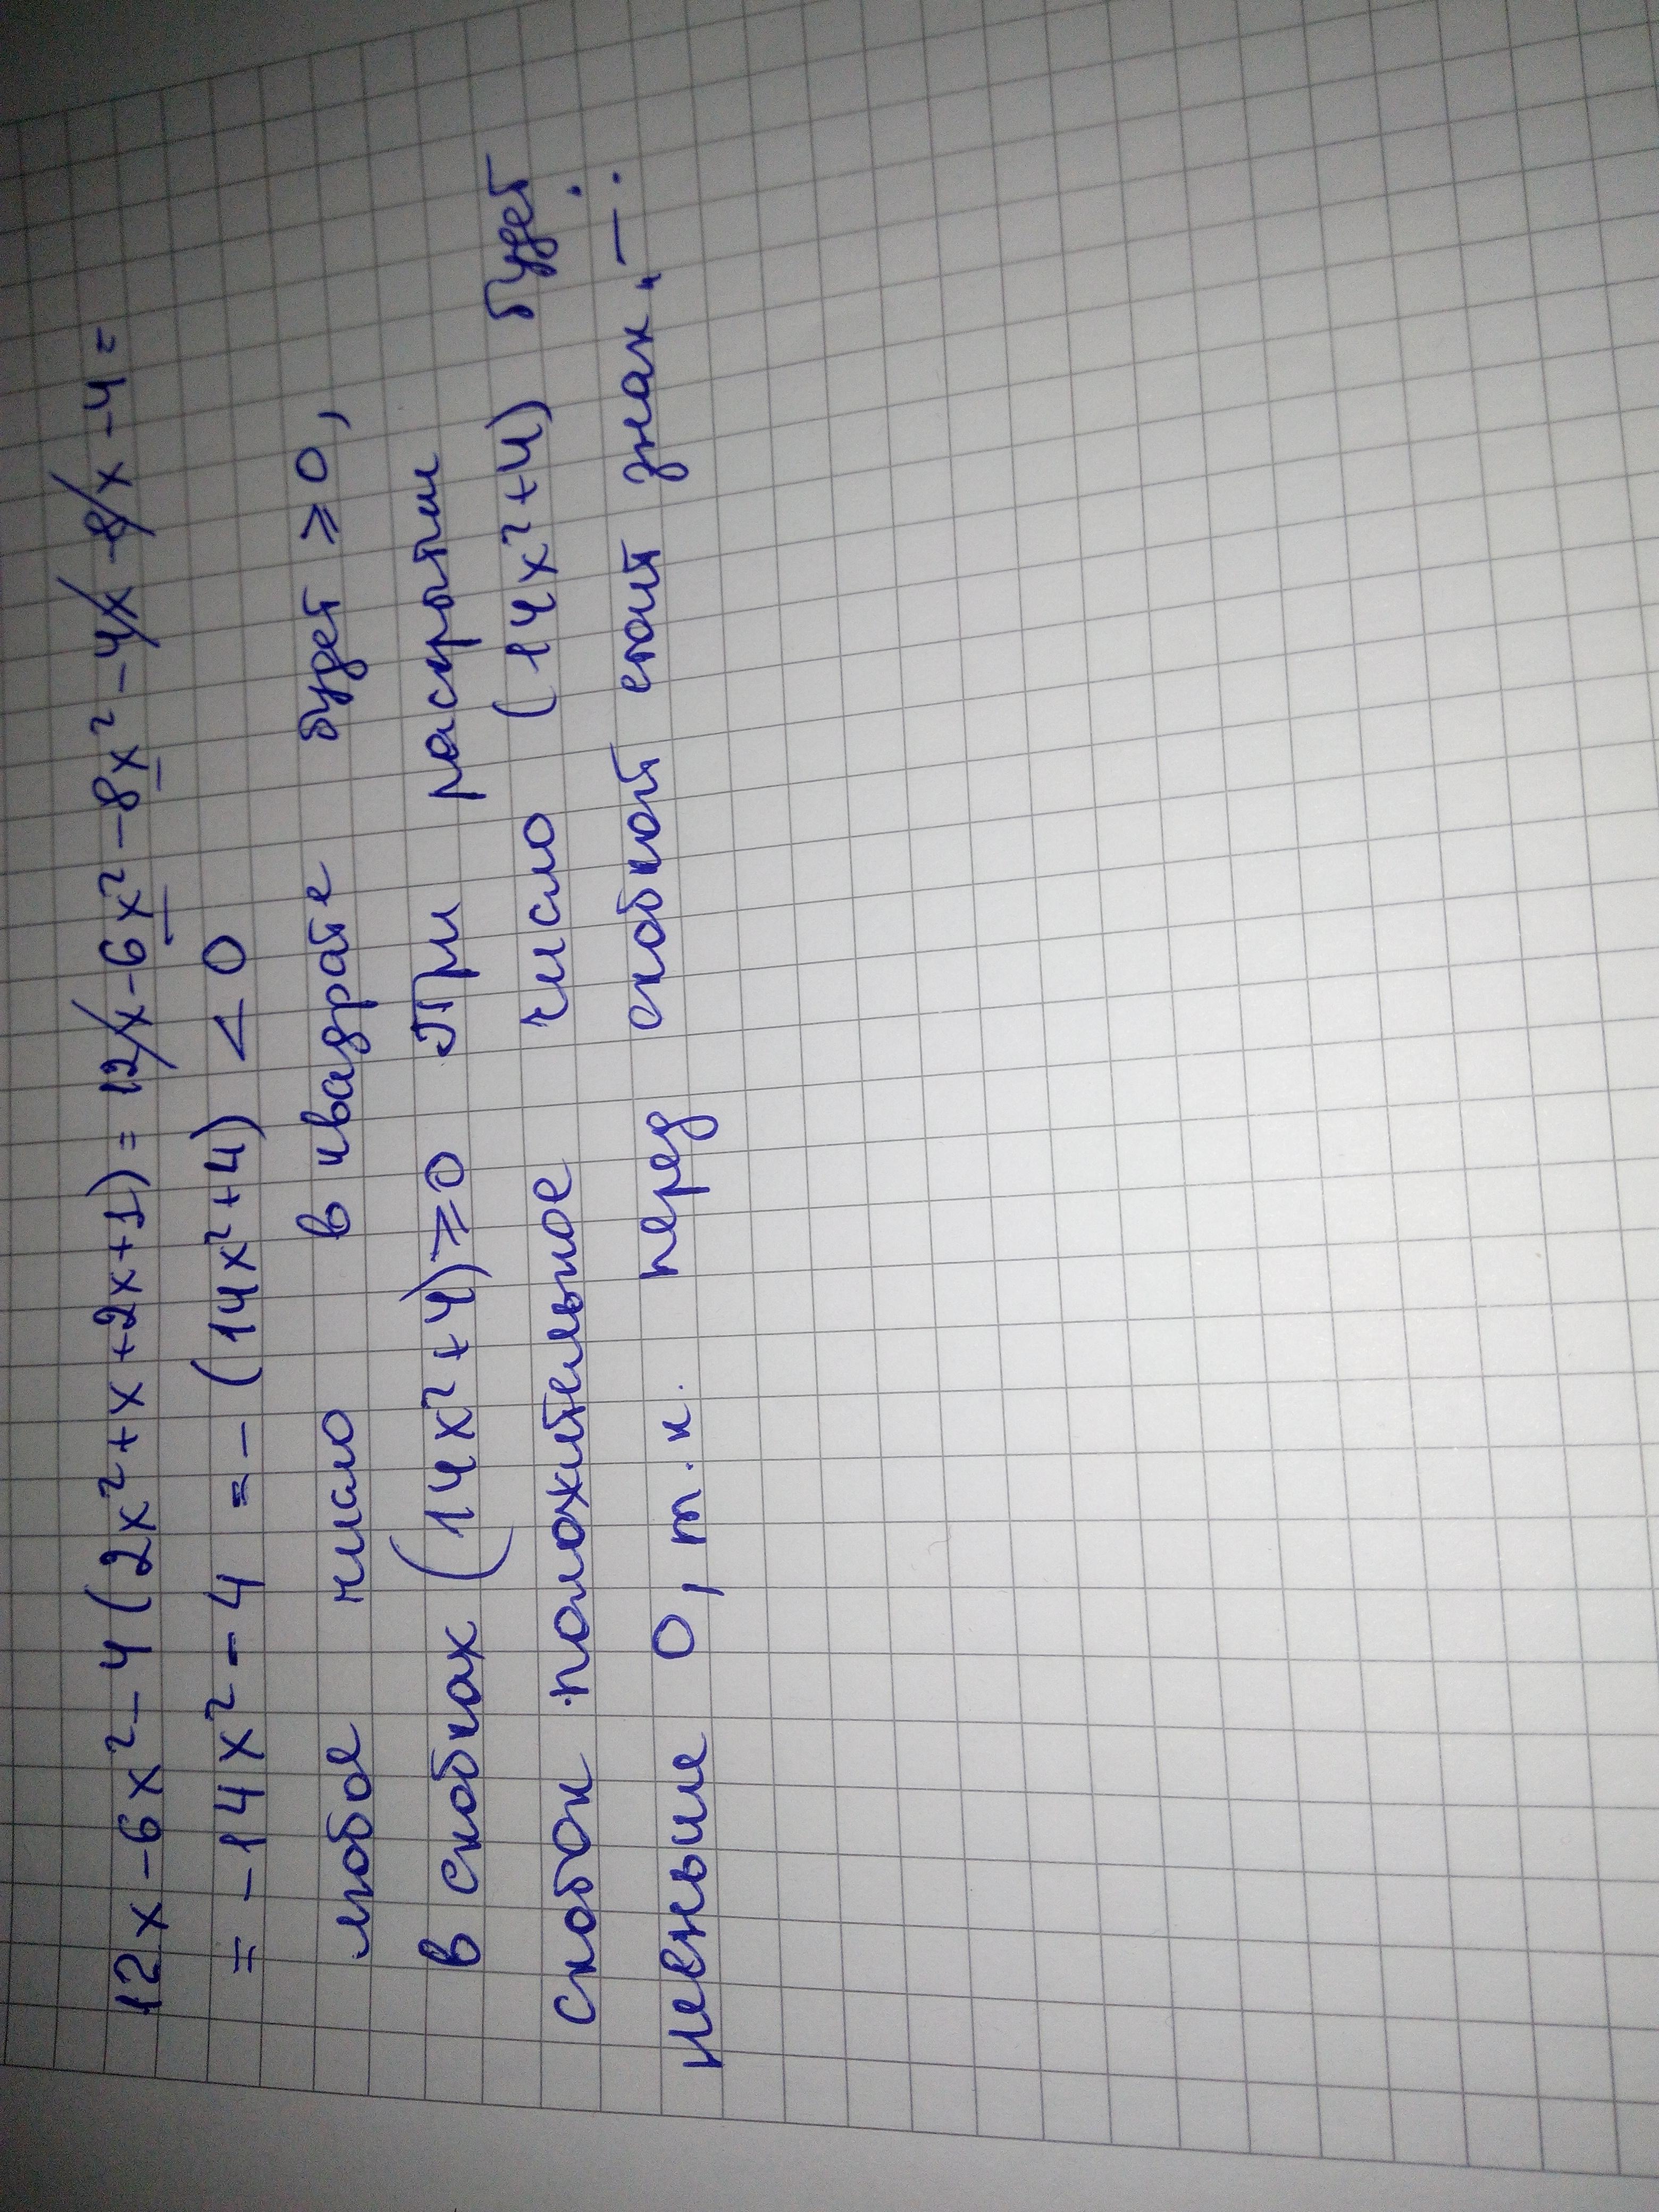 12x - 6x² - 4(2x² + x + 2x + 1) = 12x - 6x² - 8x² - 4x - 8x - 4 =
= -14x² - 4 = -(14x² + 4) < 0
любое число в квадрате будет ≥ 0,
в скобках (14x² + 4) ≥ 0 При раскрытии
скобок положительное число (14x² + 4) будет
меньше 0, т.к. перед скобкой стоит знак „—".